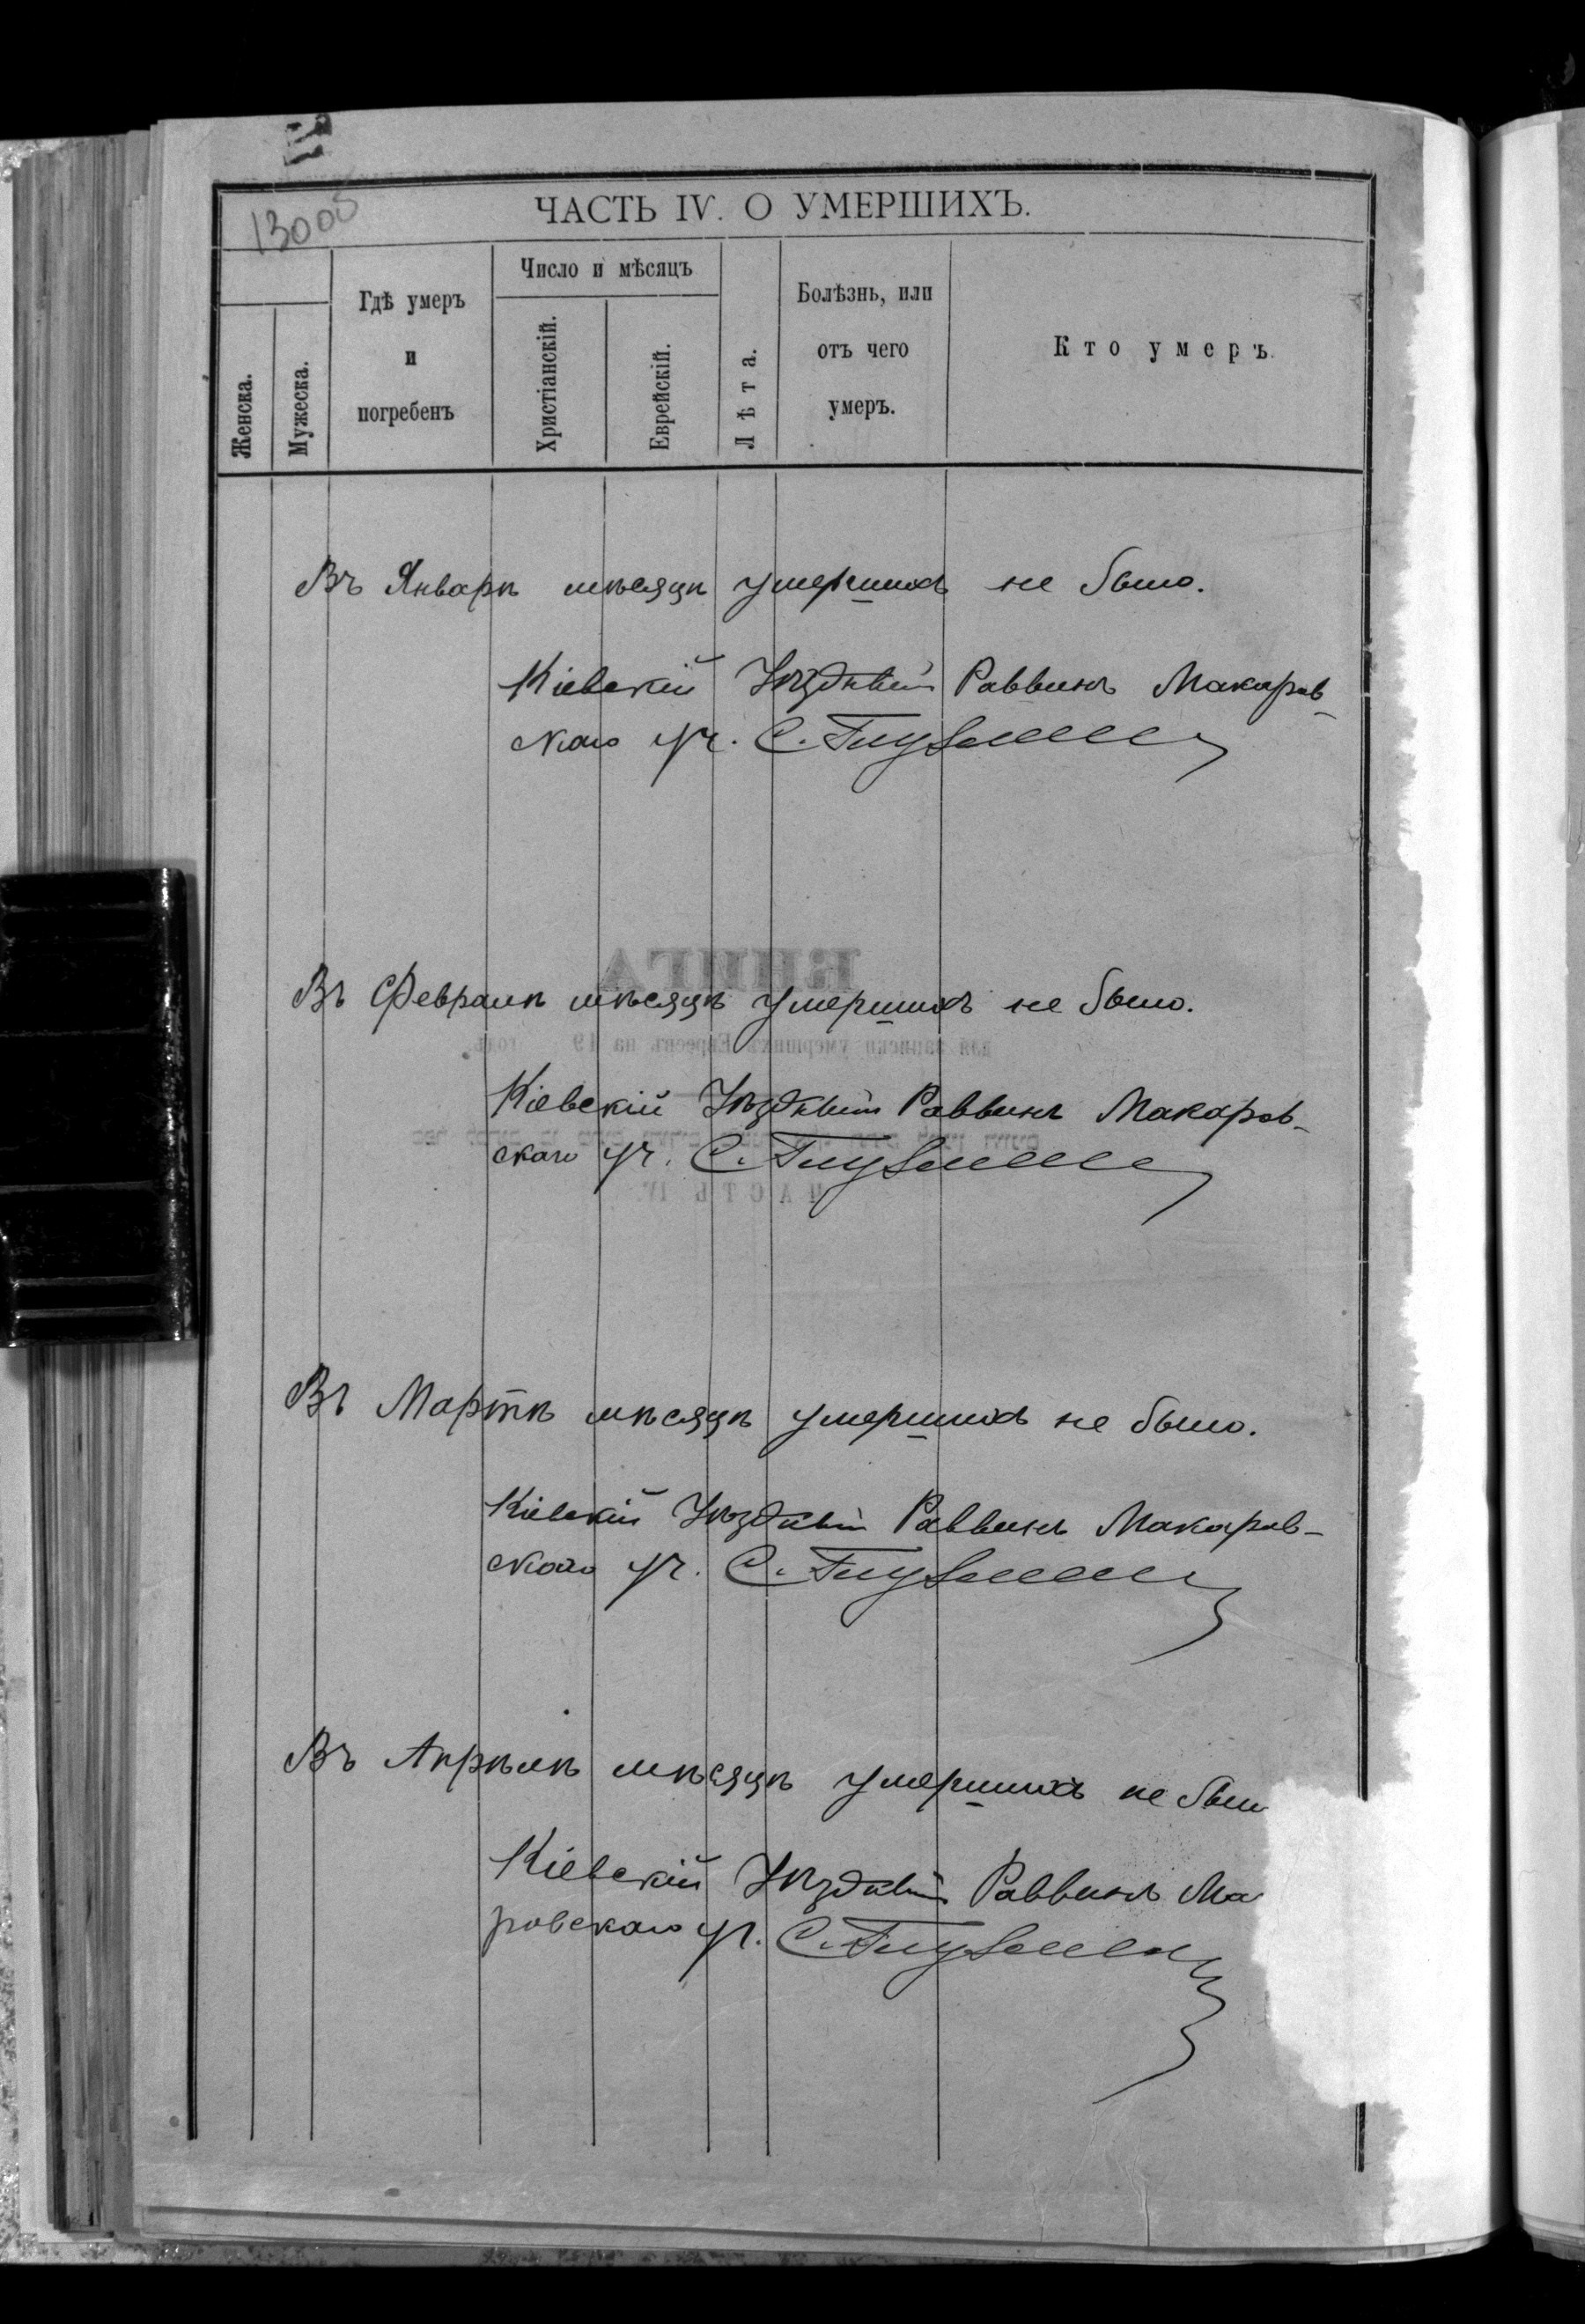 13005
ЧАСТЬ IV. О УМЕРШИХЪ.
Женска.
Мужеска.
Гдѣ умеръ
и
погребенъ
Число и мѣсяцъ
Христіанскій.
Еврейскій.
Лѣта.
Болѣзнь, или
отъ чего
умеръ.
Кто умеръ.
Въ Январѣ мѣсяцѣ умершихъ не было.
Кіевскій Уѣздный Раввинъ Макаров-
скаго уч. С.
Въ Февралѣ мѣсяцѣ умершихъ не было.
Кіевскій Уѣздный Раввинъ Макаров-
скаго уч. С.
Въ Мартѣ мѣсяцѣ умершихъ не было.
Кіевскій Уѣздный Раввинъ Макаров-
скаго уч. С.
Въ Апрѣлѣ мѣсяцѣ умершихъ не был
Кіевскій Уѣздный Раввинъ Ма
ровскаго уч. С.